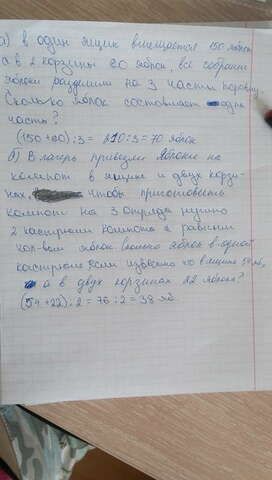 а) в один ящик вмещается 150 яблок
а в 2 корзины 60 яблок, все собрали
яблоки разделили на 3 части поровну
Сколько яблок составляет одна
часть?
(150+60):3= 210:3=70 яблок
б) В лагерь привезли яблоки на
компот в ящике и двух корзи-
нах, чтобы приготовить
компот на 3 отряда нужно
2 кастрюли компота с равным
кол-вом яблок сколько яблок в одной
кастрюле если известно что в ящике 54 яб,
а в двух корзинах 22 яблок?
(54+22):2=76:2=38 яб